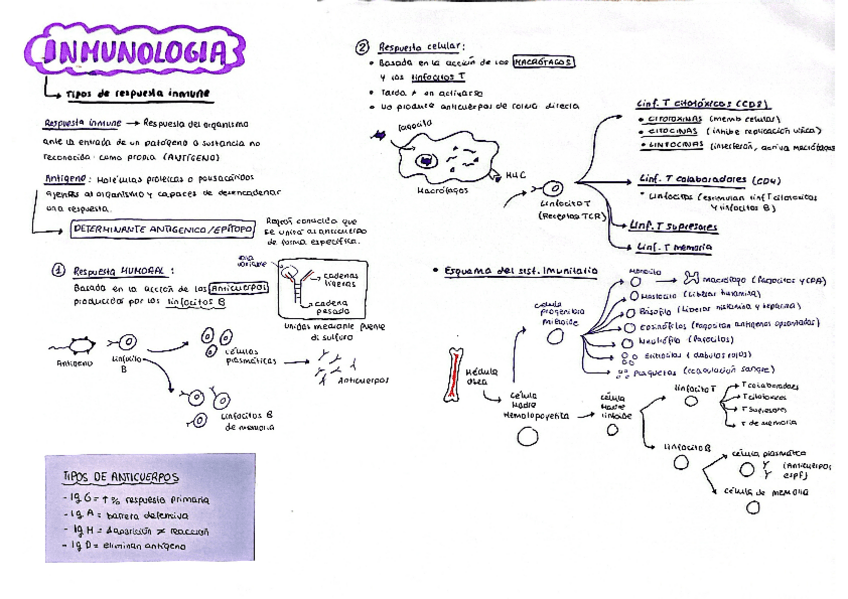 INMUNOLOGIA
Tipos de respuesta inmune
Respuesta inmune → Respuesta del organismo
ante la entrada de un patógeno o sustancia no
reconocida como propia (ANTÍGENO)
Antígeno: Moléculas proteicas o polisacáridos
ajenas al organismo y capaces de desencadenar
una respuesta.
DETERMINANTE ANTIGENICO/EPÍTOPO
Región conocida que
se une al anticuerpo
de forma específica.
① Respuesta HUMORAL:
Basada en la acción de los ANTICUERPOS
producidos por los linfocitos B
zona
variable
cadenas
ligeras
cadena
pesada
Unidas mediante puente
di sulfuro
Antígeno
linfocito
B
células
plasmáticas
Anticuerpos
linfocitos B
de memoria
TIPOS DE ANTICUERPOS
- Ig G = ↑ % respuesta primaria
- Ig A = barrera defensiva
- Ig M = aparición reacción
- Ig D = eliminan antígeno
② Respuesta celular:
• Basada en la acción de los MACRÓFAGOS
y los linfocitos T
• Tarda + en activarse
• No produce anticuerpos de forma directa
fagocita
Macrófagos
MHC
Linfocito T
(Receptor TCR)
Linf. T citotóxicos (CD8)
• CITOTOXINAS (memb celular)
• CITOCINAS (inhibe replicación vírica)
• LINFOCINAS (interferón, activa macrófagos
Linf. T colaboradores (CD4)
• Linfocinas (estimulan linf T citotóxicos
y linfocitos B)
Linf. T supresores
Linf. T memoria
• Esquema del sist. Inmunitario
Médula
ósea
célula
Madre
Hematopoyetica
célula
progenitora
mieloide
Monocito
macrófago (fagocitos y CPA)
Mastocito (Liberar histamina)
Basófilo (Liberar histamina y heparina)
Eosinófilos (Fagocitan antígenos opsonizados)
Neutrófilo (Fagocitos)
Eritrocitos (glóbulos rojos)
Plaquetas (coagulación sangre)
célula
Madre
linfoide
linfocito T
T colaboradores
T citotóxicos
T supresores
T de memoria
linfocito B
célula plasmática
(Anticuerpos
espf)
célula de memoria